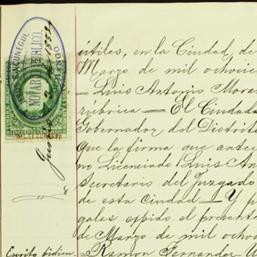 útiles, en la Ciudad, de
Marzo de mil ochocie
— Luis Antonio Mora
rúbrica — El Ciudada
Gobernador del Distrito
que la firma que antec
no Licenciado Luis An
Secretario del Juzgado
de esta Ciudad — Y p
gales espido el presente
de Marzo de mil ocho
— Ramon Fernandez
NOTARIO PUBLICO